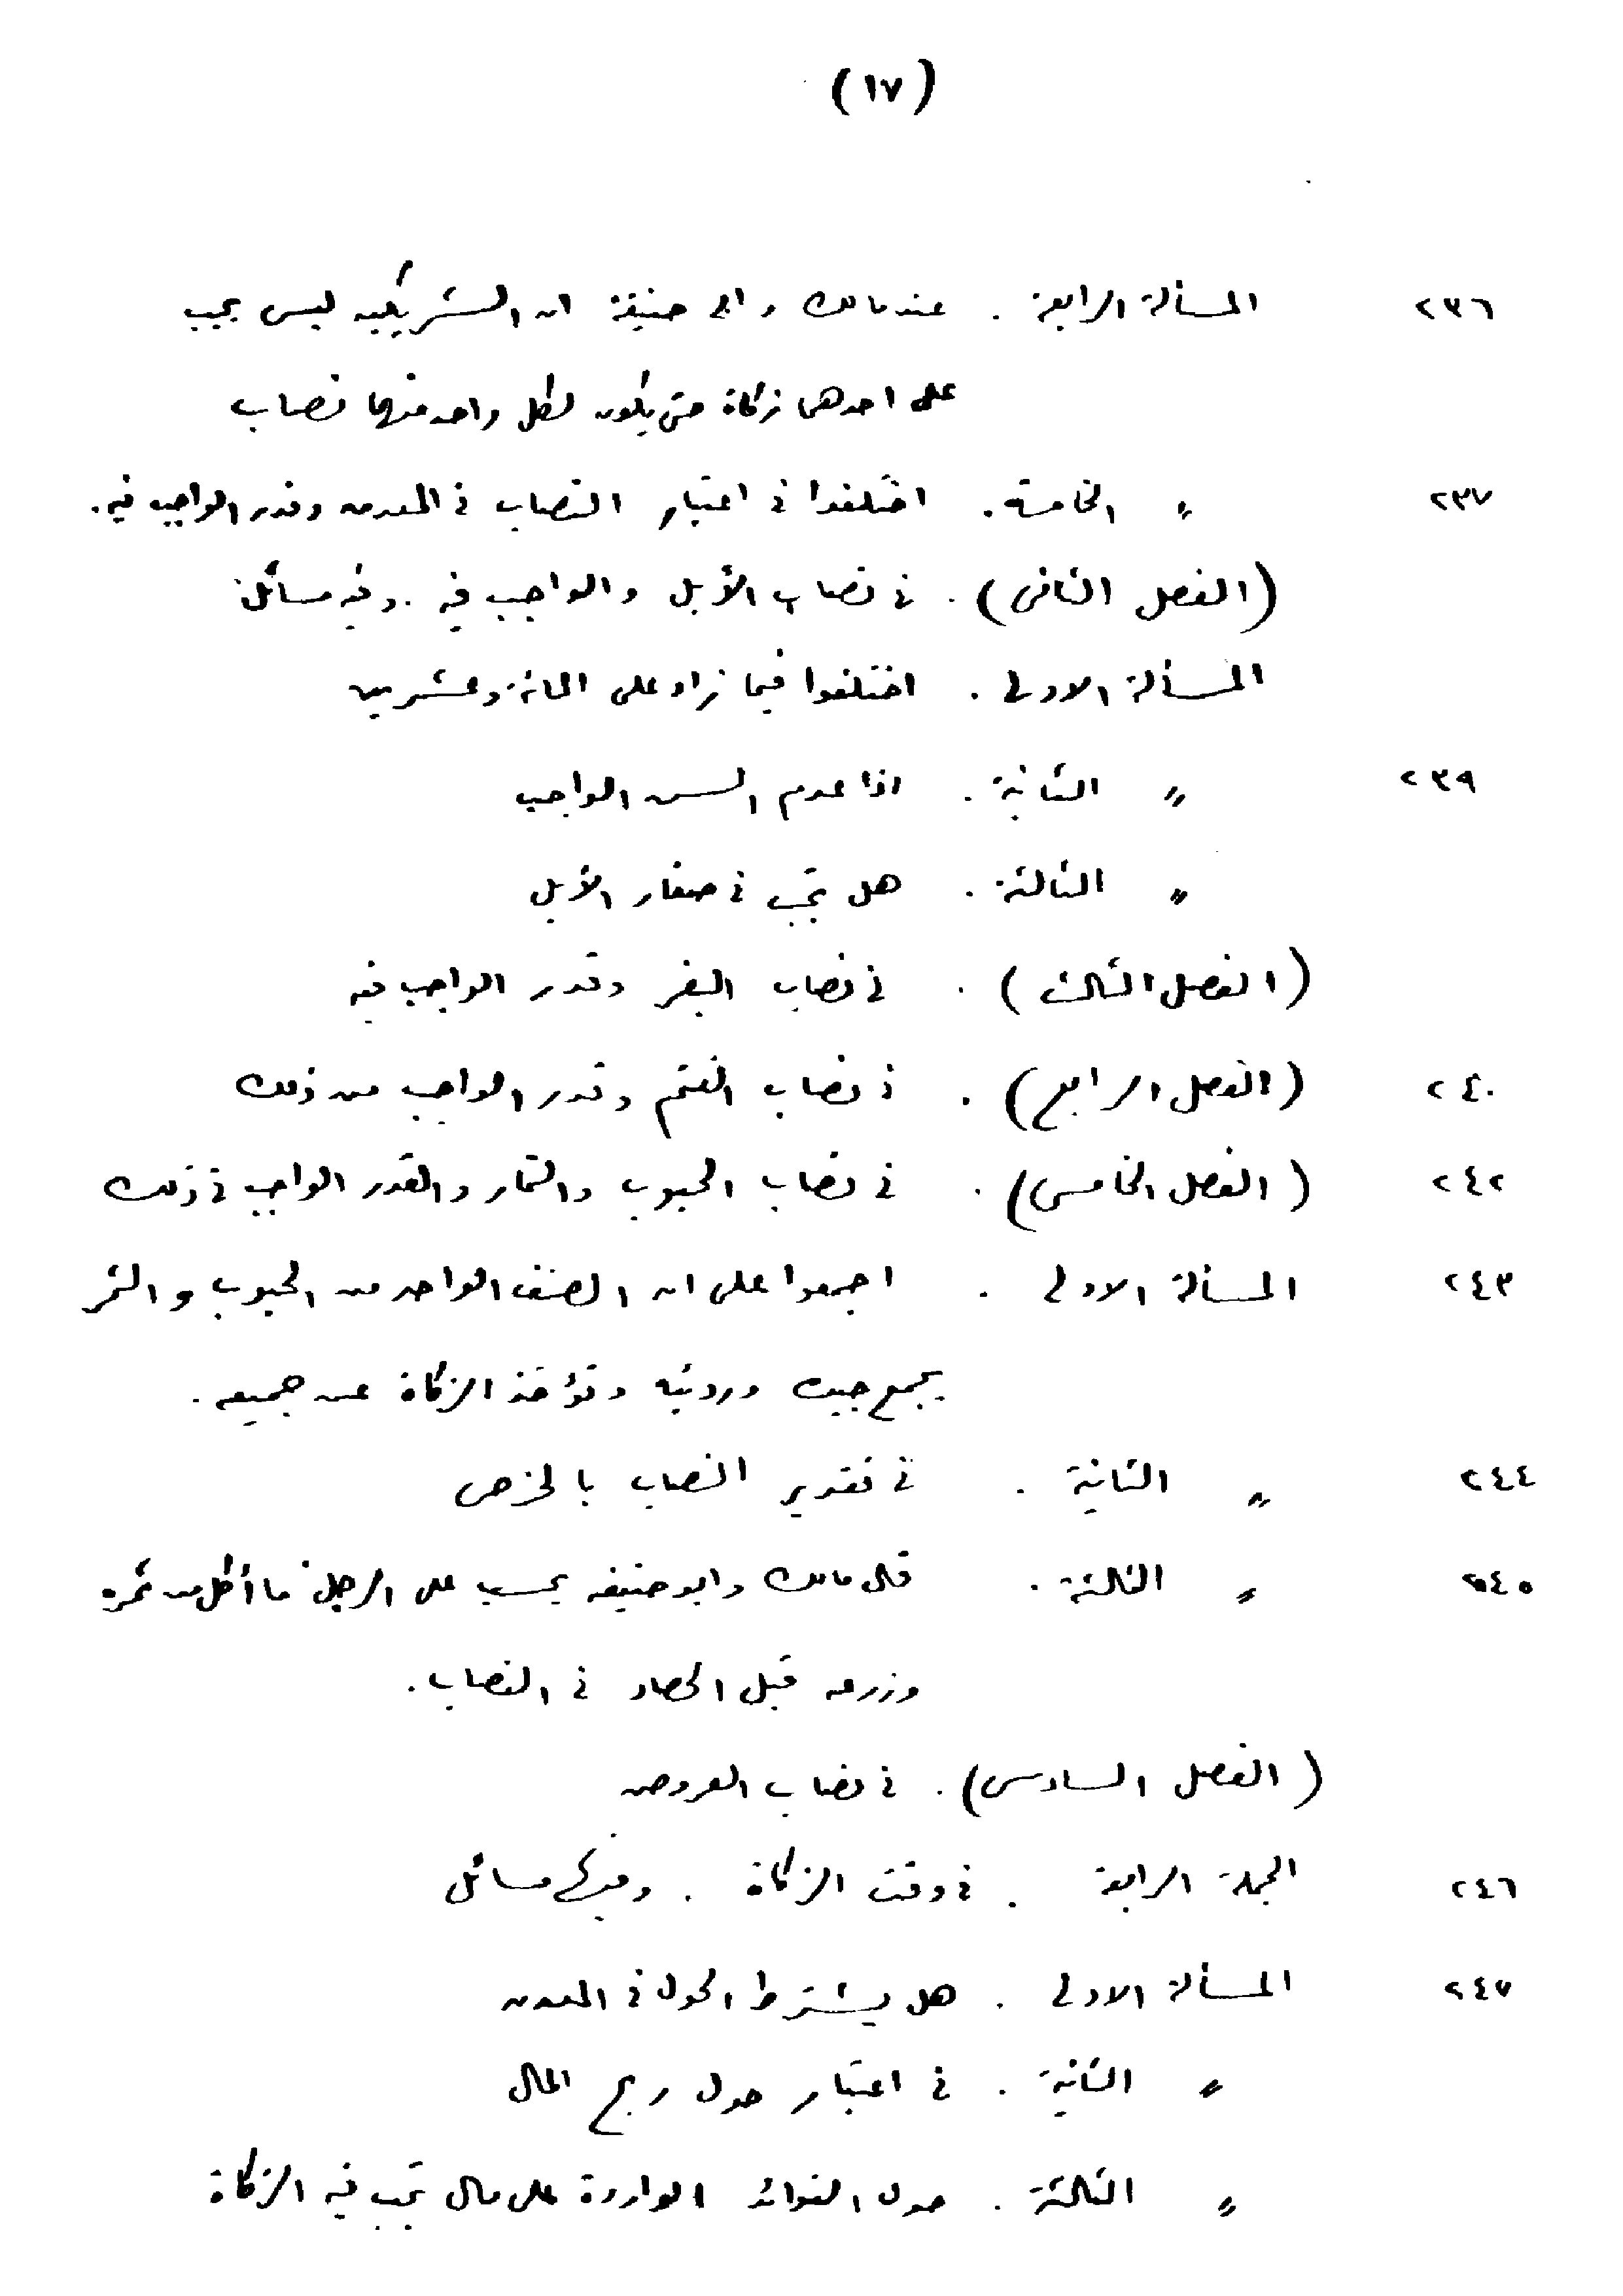 (١٧)
٢٣٦ المسألة الرابعة . عند مالك وابى حنيفة ان الشريكين ليس يجب
على احدهما زكاة حتى يكون لكل واحد منهما نصاب
٢٣٧ 〃 الخامسة . اختلفوا فى اعتبار النصاب فى المعدن وقدر الواجب فيه .
(الفصل الثانى) . فى نصاب الأبل والواجب فيه . وفيه مسائل
المسألة الاولى . اختلفوا فيما زاد على المائة وعشرين
٢٣٩ 〃 الثانية . اذا عدم السن الواجب
〃 الثالثة . هل تجب فى صغار الأبل
(الفصل الثالث) . فى نصاب البقر وقدر الواجب فيه
٢٤٠ (الفصل الرابع) . فى نصاب الغنم وقدر الواجب من ذلك
٢٤٢ (الفصل الخامس) . فى نصاب الحبوب والثمار والقدر الواجب فى ذلك
٢٤٣ المسألة الاولى . اجمعوا على ان الصنف الواحد من الحبوب والثمر
يجمع جيده ورديئه وتؤخذ الزكاة عن جميعه .
٢٤٤ 〃 الثانية . فى تقدير النصاب بالخرص
٢٤٥ 〃 الثالثة . قال مالك وابو حنيفه يحسب على الرجل ما أكل من ثمره
وزرعه قبل الحصاد فى النصاب .
(الفصل السادس) . فى نصاب العروض
٢٤٦ الجملة الرابعة . فى وقت الزكاة . وفيه مسائل
٢٤٧ المسألة الاولى . هل يشترط الحول فى المعدن
〃 الثانية . فى اعتبار حول ربح المال
〃 الثالثة . حول الفوائد الواردة على مال تجب فيه الزكاة